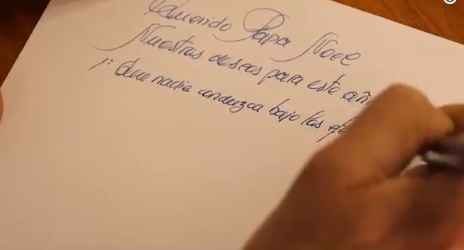 Querido Papa Noel
Nuestros deseos para este añ
1: Que nadie conduzca bajo los ef